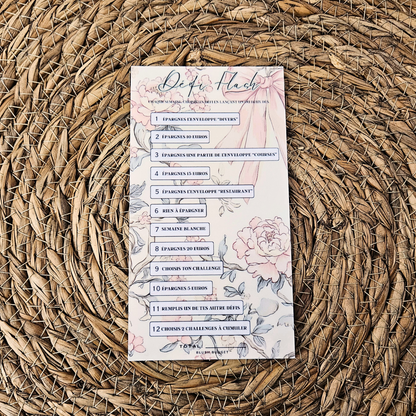 Défi Flash
1 ÉPARGNES L'ENVELOPPE "DIVERS"
2 ÉPARGNES 10 EUROS
3 ÉPARGNES UNE PARTIE DE L'ENVELOPPE "COURSES"
4 ÉPARGNES 15 EUROS
5 ÉPARGNES L'ENVELOPPE "RESTAURANT"
6 RIEN À ÉPARGNER
7 SEMAINE BLANCHE
8 ÉPARGNES 20 EUROS
9 CHOISIS TON CHALLENGE
10 ÉPARGNES 5 EUROS
11 REMPLIS UN DE TES AUTRE DÉFIS
12 CHOISIS 2 CHALLENGES À CUMULER
TOTAL
BLUSH BUDGET